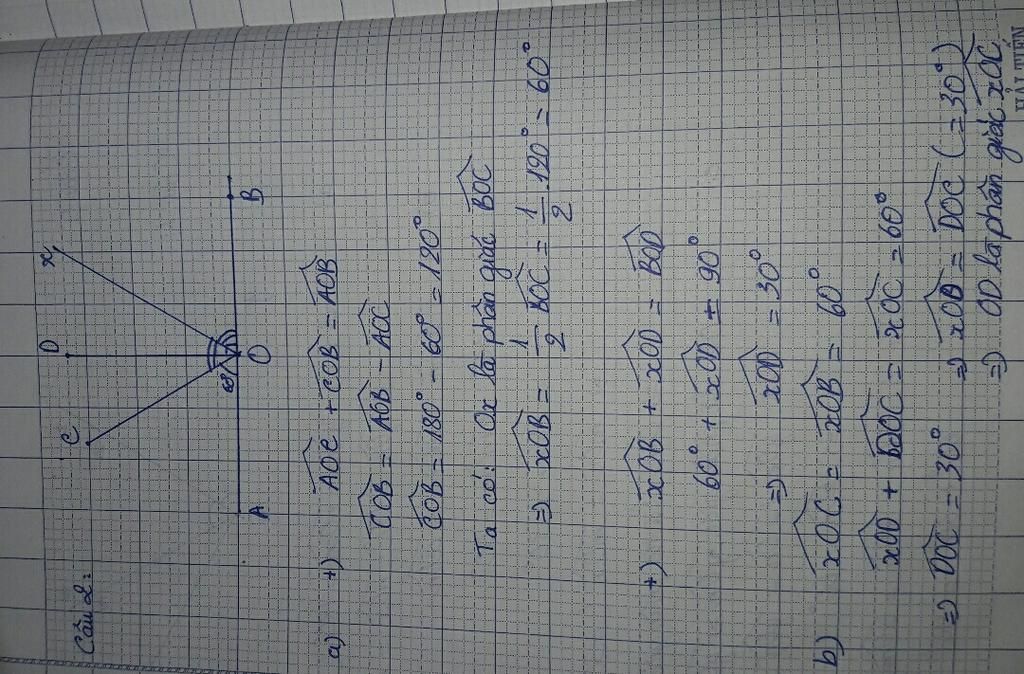 Câu 2:
C D x
60°
A O B
a) +) AOC + COB = AOB
COB = AOB - AOC
COB = 180° - 60° = 120°
Ta có: Ox là phân giác BOC
=> xOB = 1/2 BOC = 1/2 . 120° = 60°
+) xOB + xOD = BOD
60° + xOD = 90°
=> xOD = 30°
b) xOC = xOB = 60°
xOD + DOC = xOC = 60°
=> DOC = 30° => xOD = DOC (= 30°)
=> OD là phân giác xOC
HẢI TIẾN